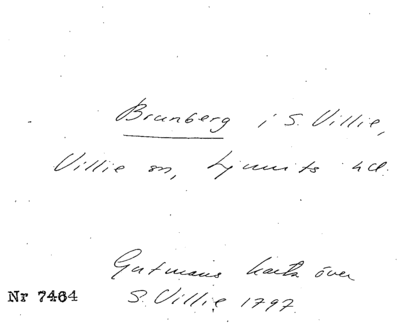 Brunberg i S. Villie,
Villie sn, Ljunits hd.
Gutmans karta över
Nr 7464 S. Villie 1797